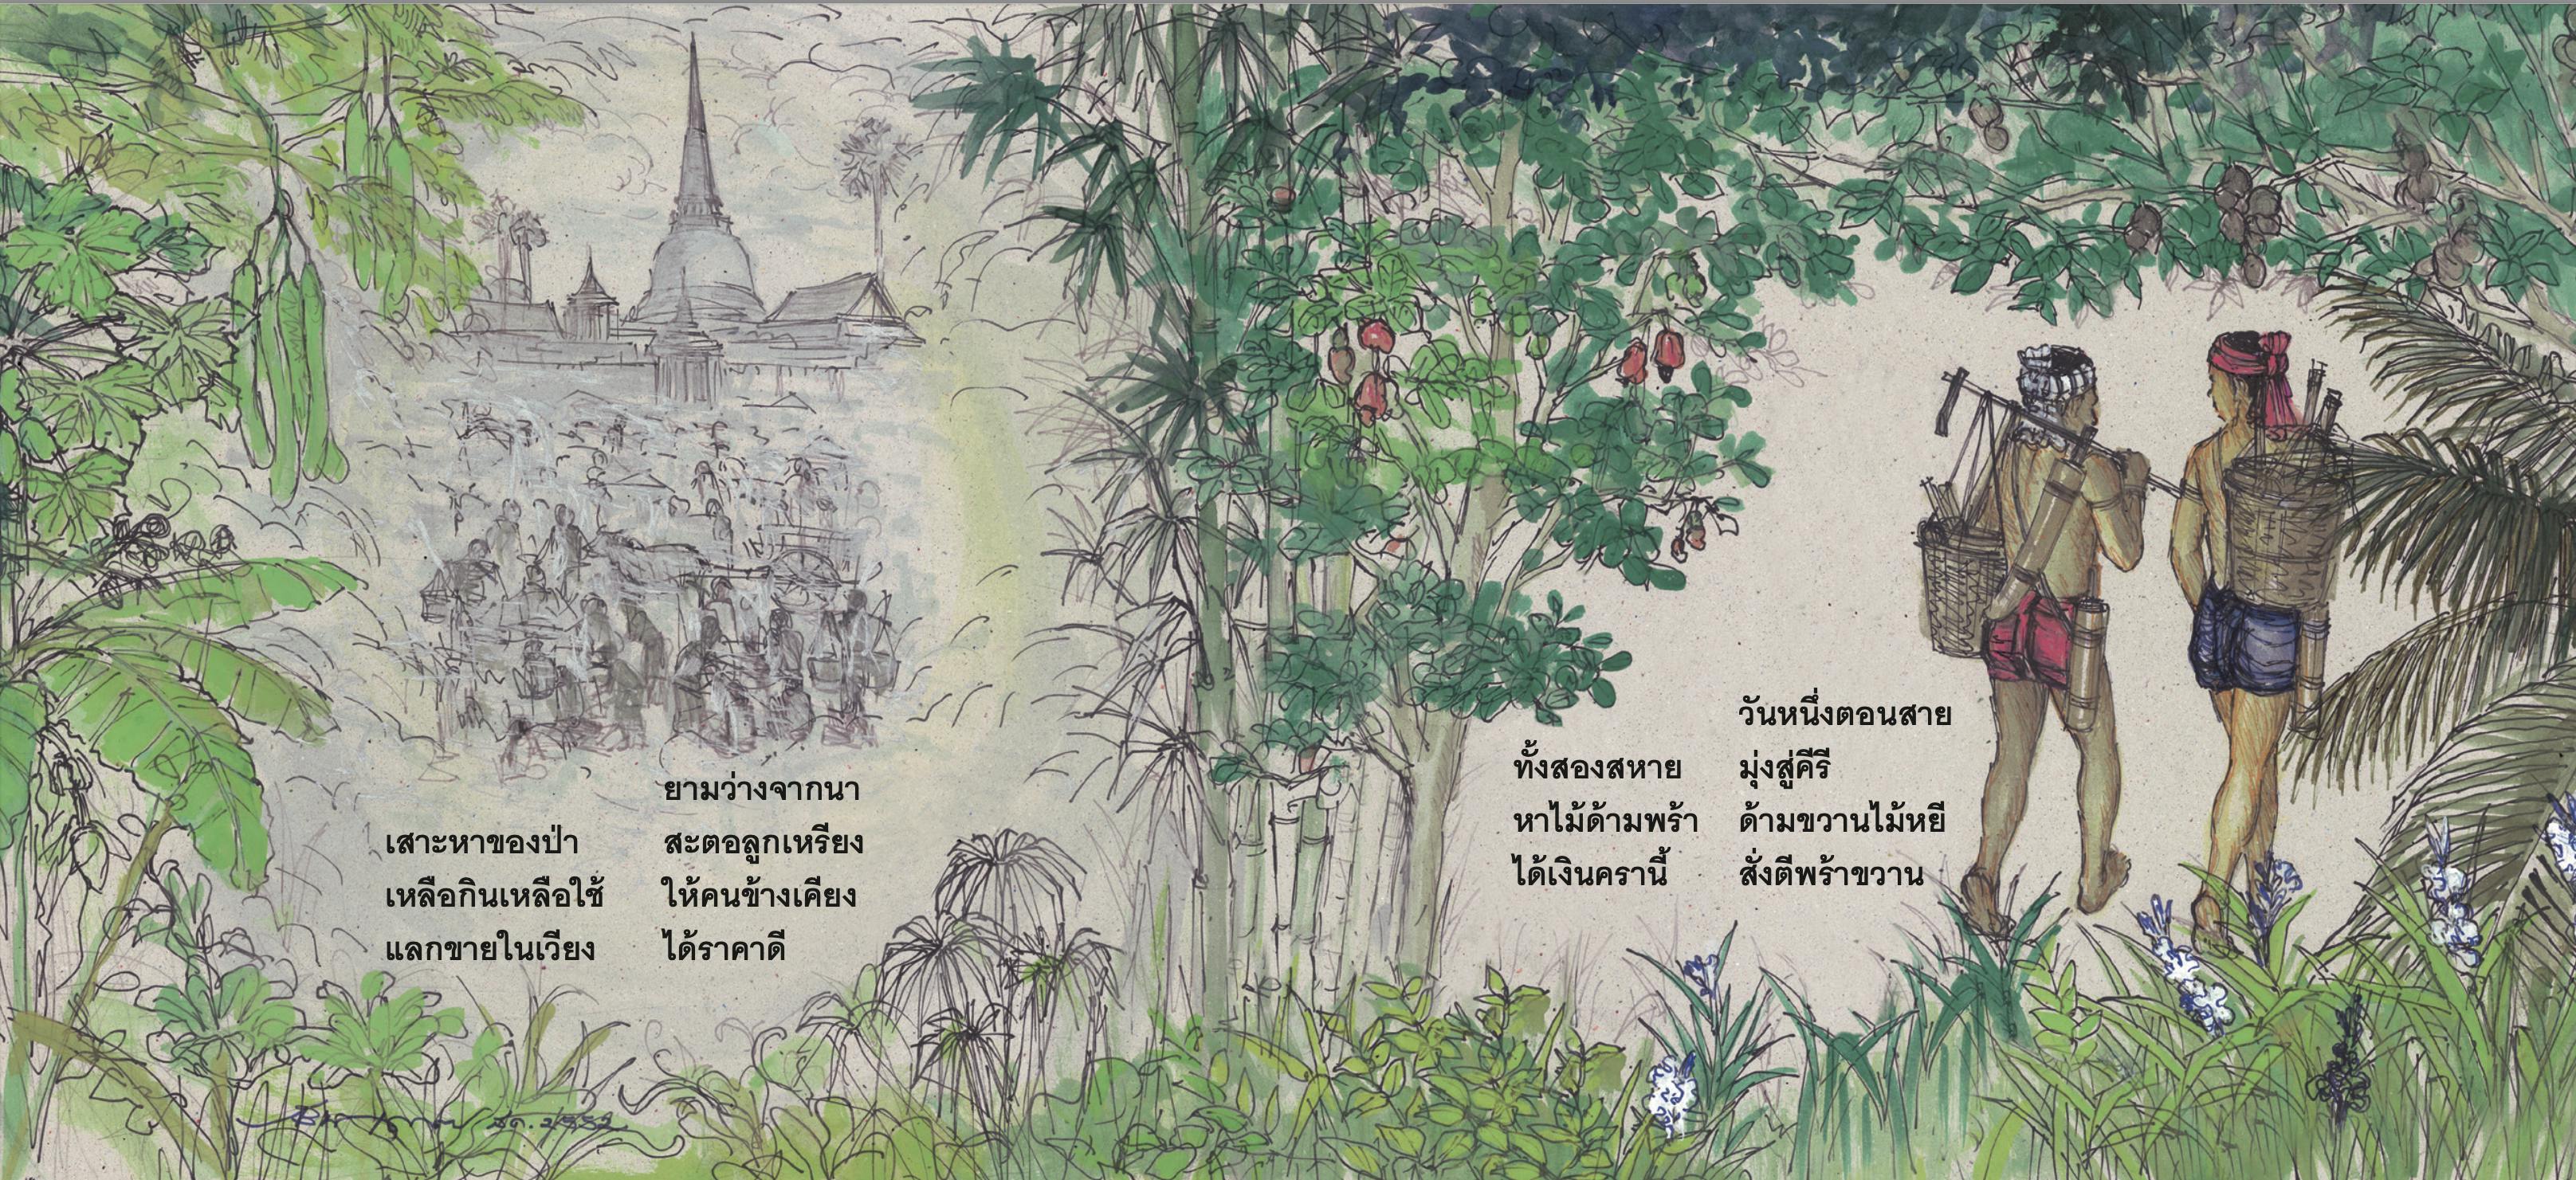 ยามว่างจากนา
เสาะหาของป่า สะตอลูกเหรียง
เหลือกินเหลือใช้ ให้คนข้างเคียง
แลกขายในเวียง ได้ราคาดี
วันหนึ่งตอนสาย
ทั้งสองสหาย มุ่งสู่คีรี
หาไม้ด้ามพร้า ด้ามขวานไม้หยี
ได้เงินครานี้ สั่งตีพร้าขวาน